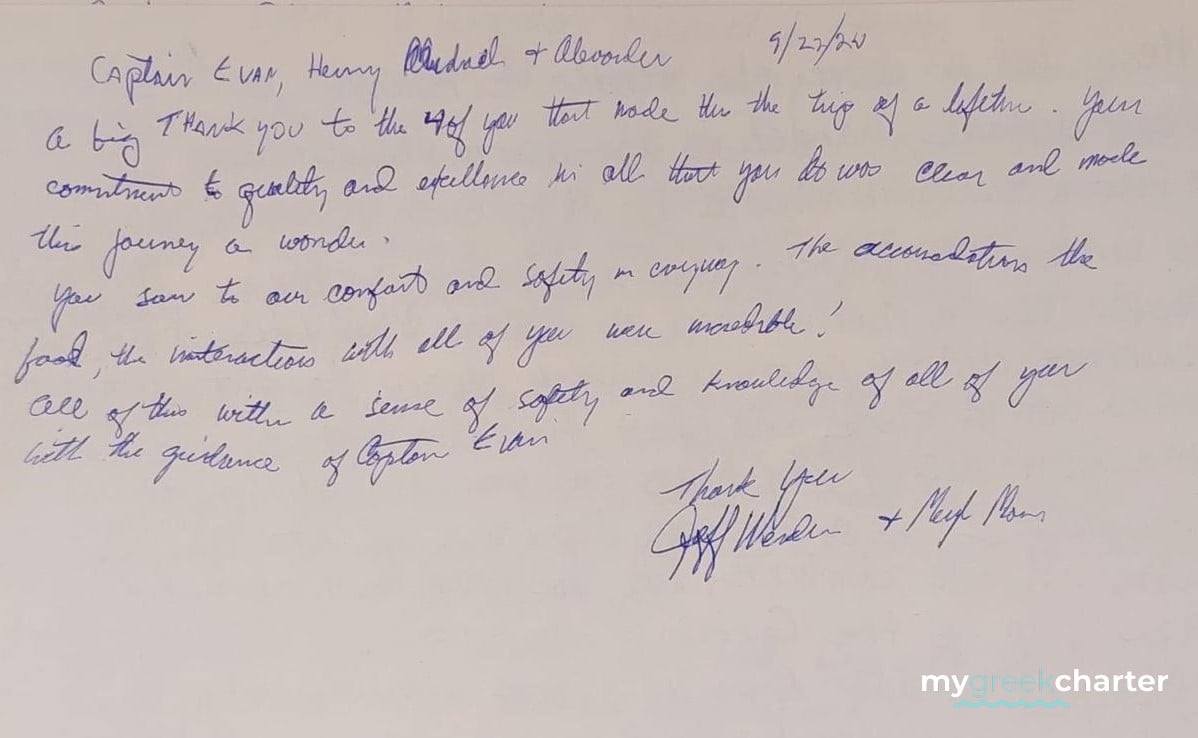 Captain EVAN, Henry + Alexander 9/22/20
A big THANK YOU to the 4 of you that made this the trip of a lifetime. Your
commitment to quality and excellence in all that you do was clear and made
this journey a wonder.
You saw to our comfort and safety in everyway. The accomodations the
food, the interactions with all of you were incredible!
All of this within a sense of safety and knowledge of all of you
with the guidance of Captain Evan
Thank You
Jeff + Meryl
mygreekcharter